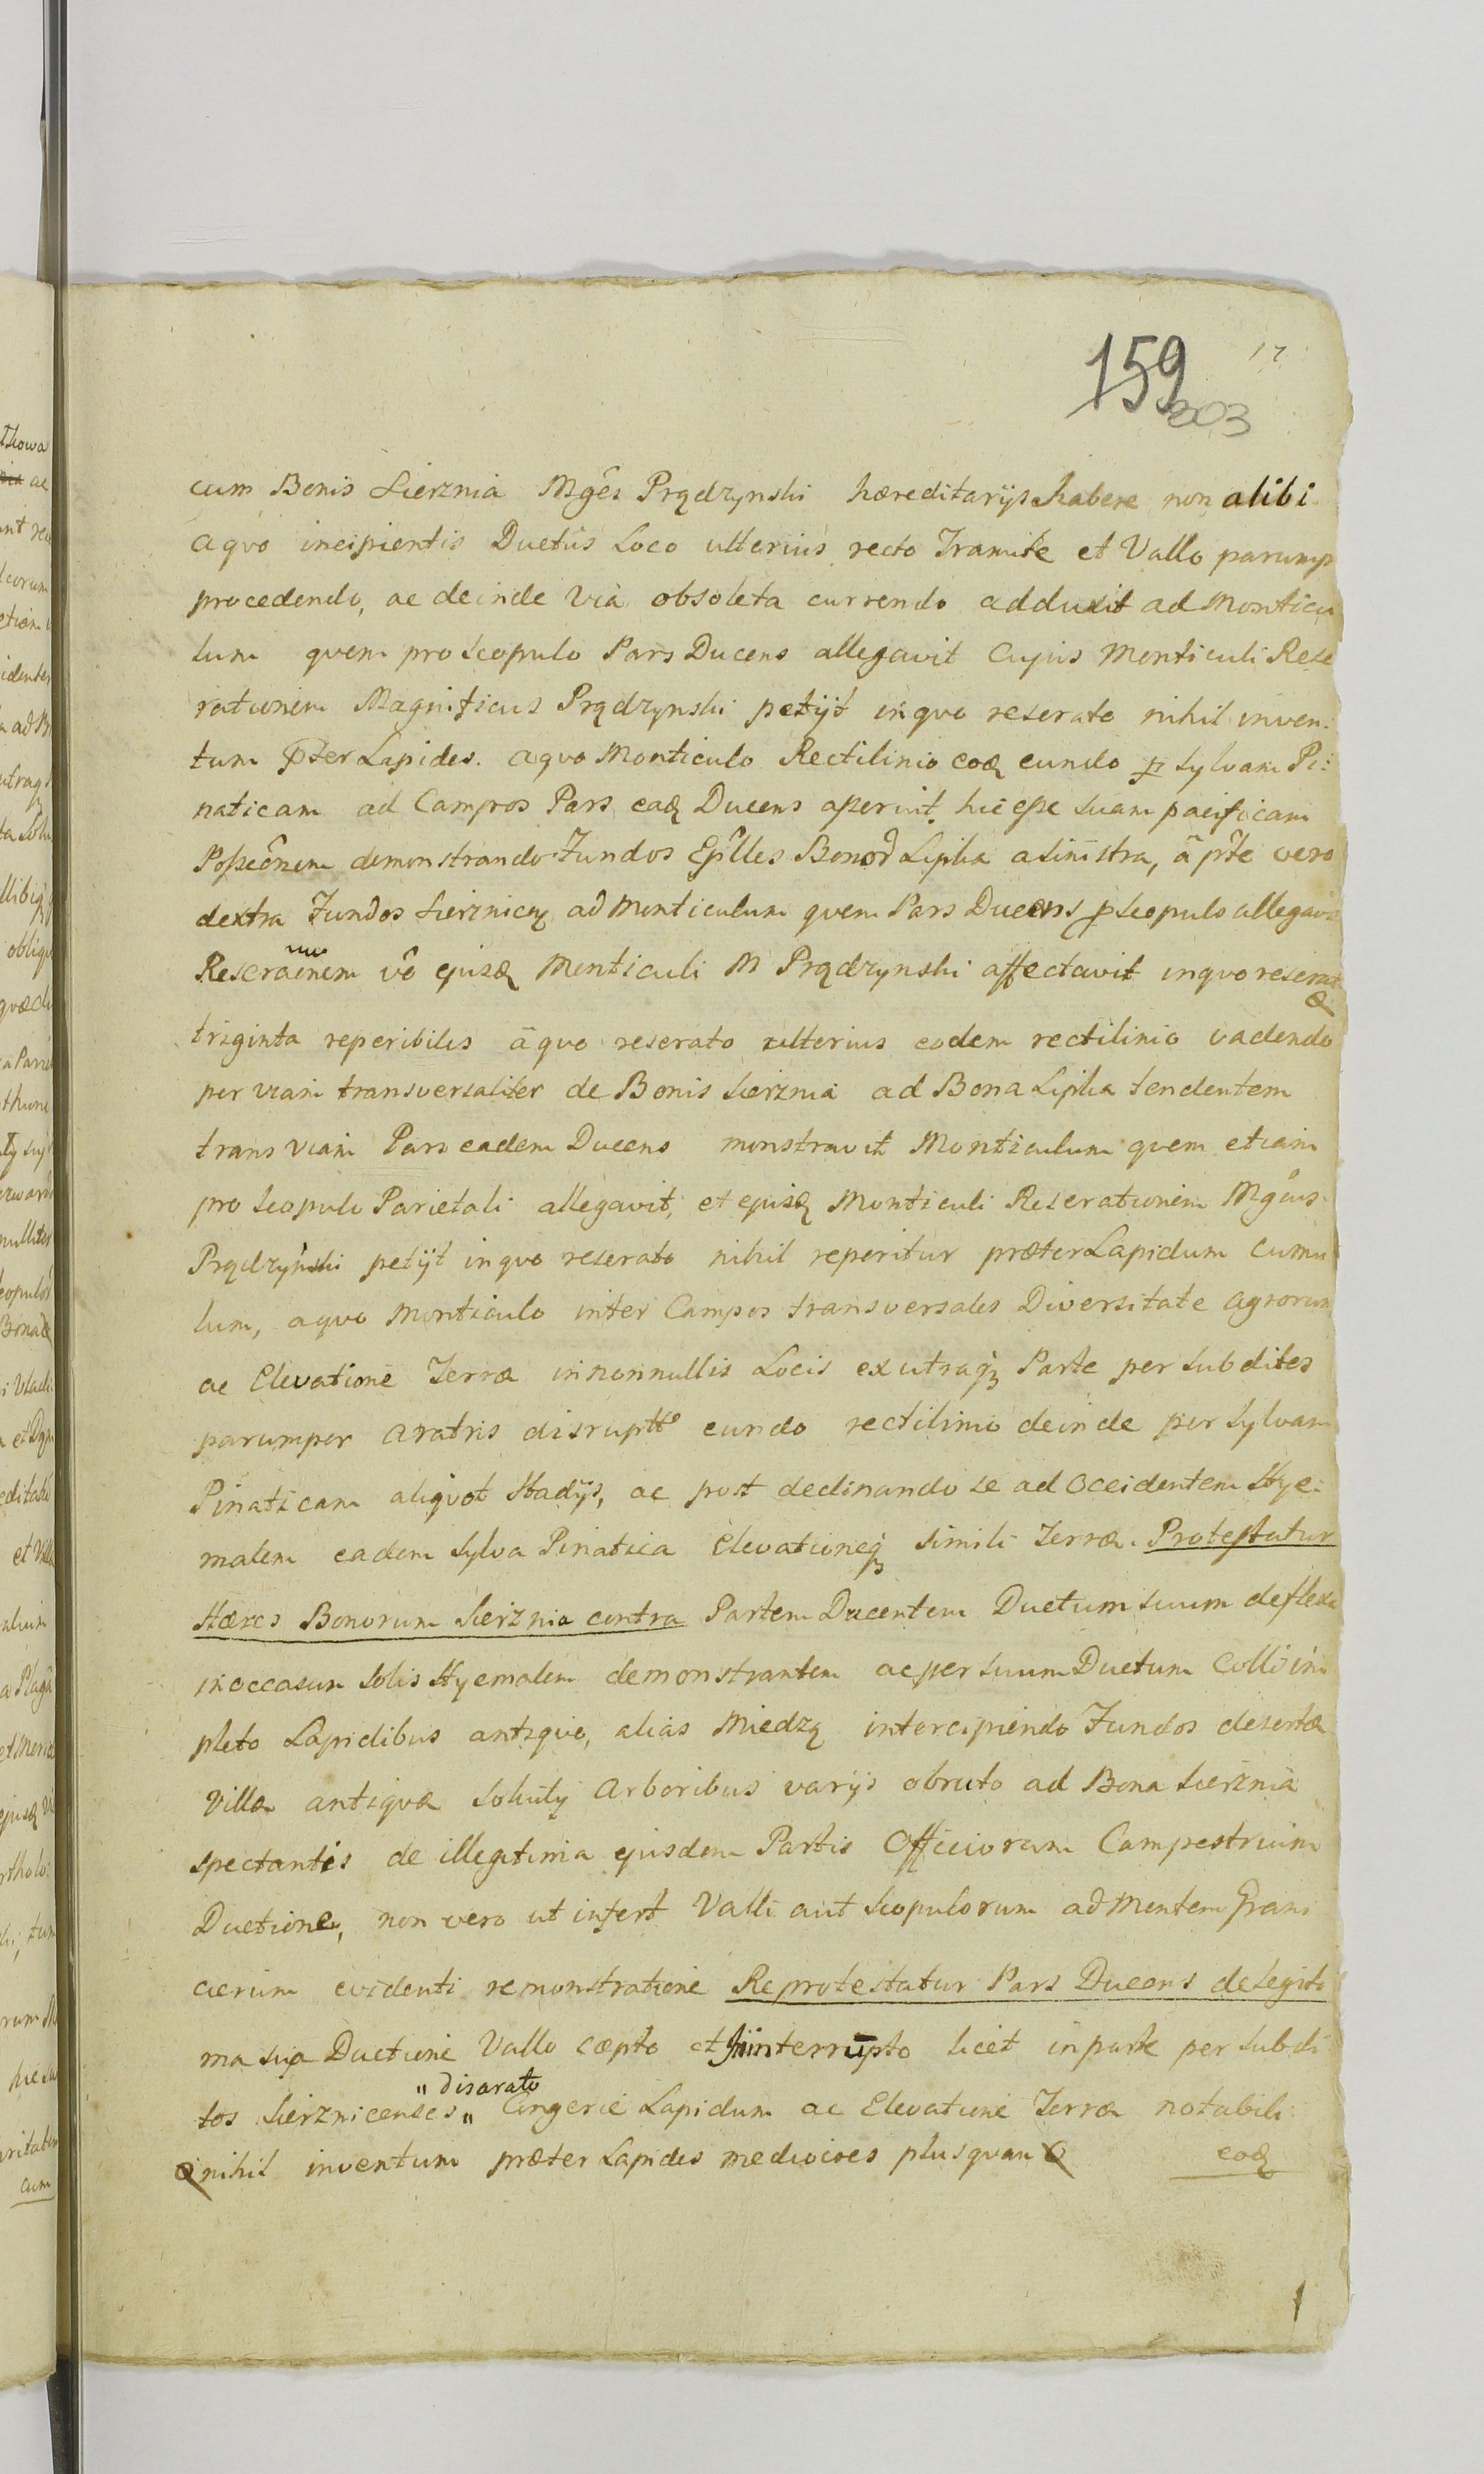 17
159
303
cum Bonis Sierznia Mgês Prądzynski hæreditarijs habere non alibi
aqvo incipientis Ductûs Loco ulterius recto Tramite et Vallo parump
procedendo, ac deinde via obsoleta currendo adduxit ad Monticu
lum qvem pro Scopulo Pars Ducens allegavit Cujus Monticuli Rese
rationem Magnificus Prądzynski petijt inqvo reserato nihil inven:
tum pter Lapides. aqvo Monticulo Rectilinio eoq eundo p Sylvam Pi:
naticam ad Campos Pars eaq Ducens asperuit hic esse Suam pacificam
Possêonem demonstrando Fundos Bonor Lipka a Sinistra, â pte vero
dextra Fundos Sierznicen ad Monticulum qvem Pars Ducens p Scopulo allegavit
Reseraônem vô ejusq Monticuli M Prądzynski affectavit inqvo reserat
triginta reperibiles âqvo reserato ulterius eodem rectilinio vadendo
per viam transversaliter de Bonis Sierznia ad Bona Lipka tendentem
trans viam Pars eadem Ducens monstravit Monticulum qvem etiam
pro Scopulo Parietali allegavit, et ejusq Monticuli Reserationem Mgcus
Prądzyński petijt inqvo reserato nihil reperitur præter Lapidum cumu
lum, aqvo Monticulo inter Campos transversales Diversitate agrorum
ac Elevatione Terræ in nonnullis Locis ex utraq Parte per Subditos
parumper aratris disrupto eundo rectilinio deinde per Sylvam
Pinaticam aliqvot Stadijs, ac post declinando se ad Occidentem Hye:
malem eadem Sylva Pinatica Elevationeq Simili Terræ. Protestatur
Hæres Bonorum Sierznia contra Partem Ducentem Ductum Suum deflexe
in occasum Solis Hyemalem demonstrantem ac per Suum Ductum Colli im
pleto Lapidibus antiqvo, alias Miedzą intercipiendo Fundos desertæ
Villæ antiqvæ Arboribus varijs obruto ad Bona Sierznia
spectantes de illegitima ejusdem Partis Officiorum Campestrium
Ductione, non vero ut infert Valli aut Scopulorum ad Mentem Grani
cierum evidenti remonstratione Reprotestatur Pars Ducens de Legiti
ma Sua Ductione Vallo cæpto et interrupto licet in parte per Subdi
tos Sierznicenses " disarato " Congerie Lapidum ac Elevatione Terræ notabili
nihil inventum præter Lapides mediocres plusqvam
eoq